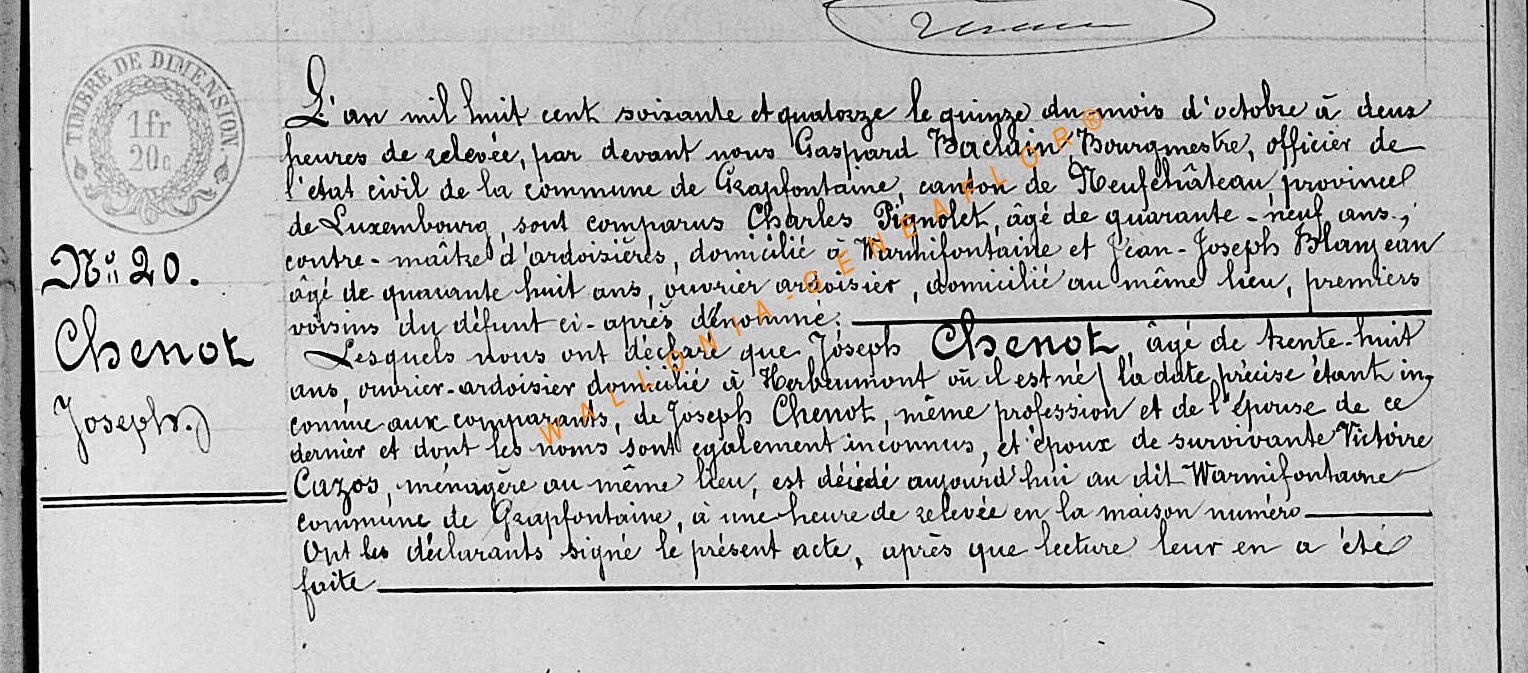 TIMBRE DE DIMENSION
1fr
20c
Nº 20.
Chenot
Joseph.
L'an mil huit cent soixante et quatorze le quinze du mois d'octobre à deux
heures de relevée, par devant nous Gaspard Baclain, Bourgmestre, officier de
l'état civil de la commune de Grapfontaine, canton de Neufchâteau province
de Luxembourg, sont comparus Charles Pignolet, âgé de quarante-neuf ans,
contre-maître d'ardoisières, domicilié à Warmifontaine et Jean-Joseph Blanjean
âgé de quarante huit ans, ouvrier ardoisier, domicilié au même lieu, premiers
voisins du défunt ci-après dénommé.
Lesquels nous ont déclaré que Joseph Chenot, âgé de trente-huit
ans, ouvrier-ardoisier domicilié à Herbeumont où il est né / la date précise étant in-
connue aux comparants, de Joseph Chenot, même profession et de l'épouse de ce
dernier et dont les noms sont également inconnus, et époux de survivante Victoire
Cazos, ménagère au même lieu, est décédé aujourd'hui au dit Warmifontaine
commune de Grapfontaine, à une heure de relevée en la maison numéro
Ont les déclarants signé le présent acte, après que lecture leur en a été
faite
WALLONIA-GENEAFLOR®